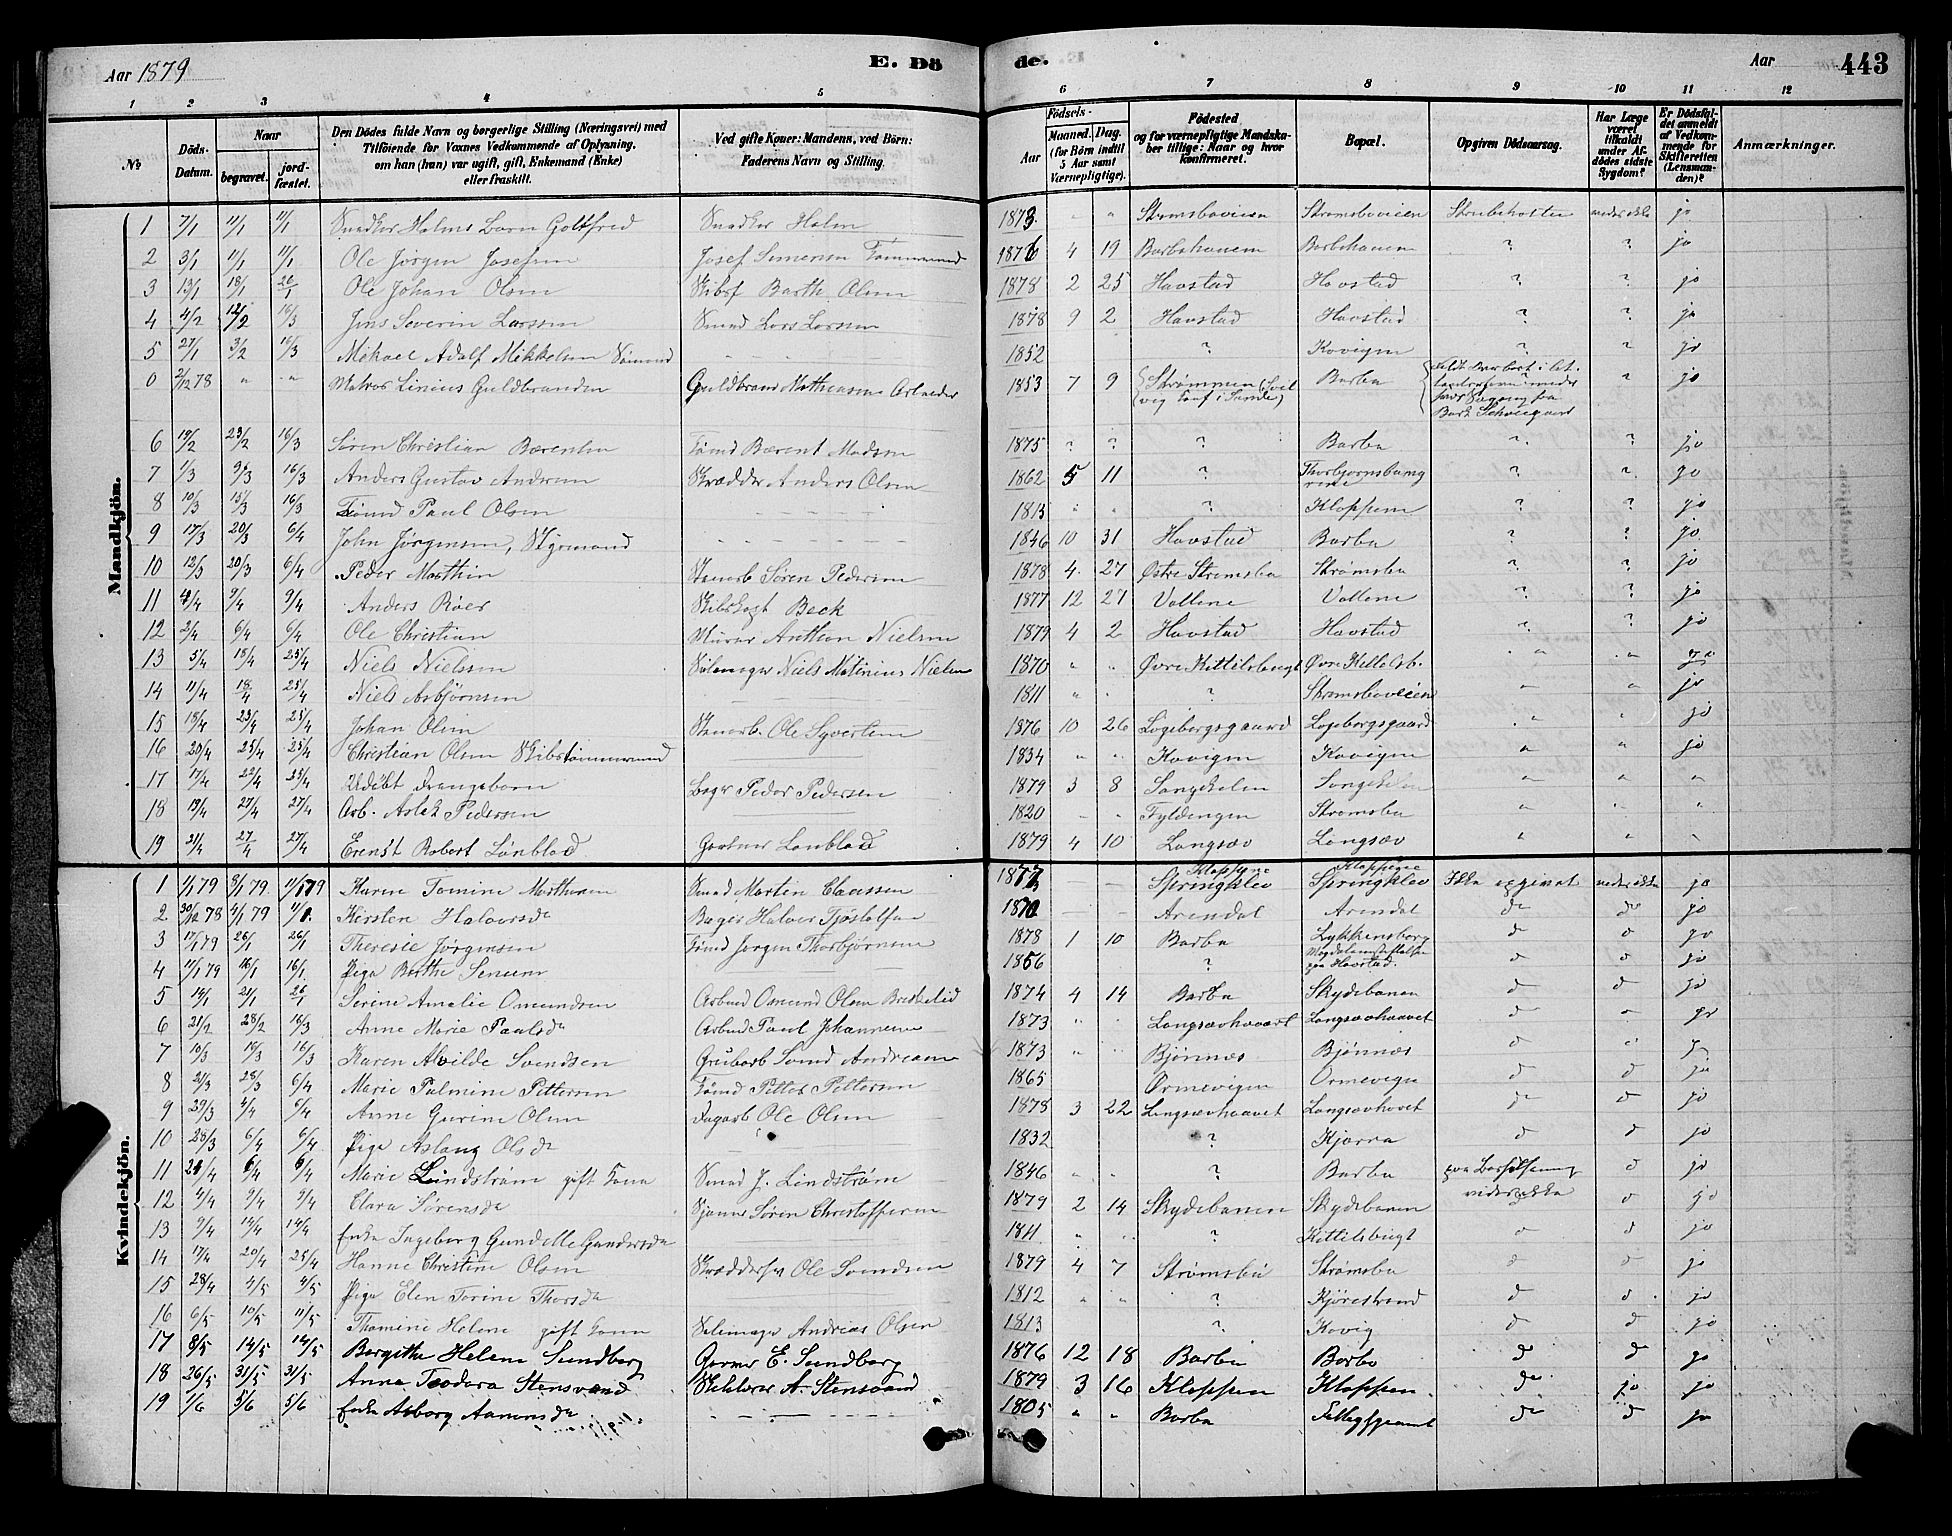 Aar 1879
E. Dö
de.
Aar
443
1 2 3 4 5 6 7 8 9 10 11 12
No
Döds-Datum.
Naar
begravet.
jordfæstet.
Den Dödes fulde Navn og borgerlige Stilling (Næringsvei) med Tilföiende for Voxnes Vedkommende af Oplysning, om han (hun) var ugift, gift, Enkemand (Enke) eller fraskilt.
Ved gifte Koner: Mandens, ved Börn: Faderens Navn og Stilling.
Födsels-
Aar
Maaned. Dag.
(for Börn indtil 5 Aar samt Værnepligtige).
Födested
og for værnepligtige Mandskaber tillige: Naar og hvor konfirmeret.
Bopæl.
Opgiven Dödsaarsag.
Har Læge været tilkaldt under Afdödes sidste Sygdom?
Er Dödsfaldet anmeldt af Vedkommende for Skifteretten (Lensmanden)?
Anmærkninger.
Mandkjön.
1 7/1 11/1 11/1 Snedker Holms Barn Gottfred Snedker Holm 1873 " " Strømsboveien Strømsboveien Strubehoste ja
2 3/1 11/1 11/1 Ole Jørgen Josefsen Josef Simensen Tømmermd 1876 4 19 Barbohaven Barbohaven ? ? ja
3 13/1 18/1 26/1 Ole Johan Olsen Skibsf Barth. Olsen 1878 2 25 Havstad Havstad ? ? ja
4 4/2 12/2 16/3 Jens Severin Larssen Smed Lars Larssen 1878 9 2 Havstad Havstad ? ? ja
5 27/1 3/2 16/3 Mikael Adolf Mikkelsen Sømand 1852 ? Kovigen ? ? ja
0 2/12 78 " " Matros Linius Guldbrandsen Guldbrand Mathiassen Arbeider 1853 7 9 Strømmen Barbu ? ja
6 19/2 23/2 16/3 Søren Christian Bærentsen Tømd Bærent Madsen 1875 ? ? ? Barbu ? ? ja
7 1/3 9/3 16/3 Anders Gustav Andersen Skrædder Anders Olsen 1862 5 11 ? ? ? ja
8 10/3 15/3 16/3 Tømd Paul Olsen 1813 " " ? Kloppen ? ? ja
9 17/3 20/3 6/4 John Jørgensen, Styrmand 1846 10 31 Havstad Barbu ? ? ja
10 12/3 20/3 6/4 Peder Marthin Søren Pedersen 1878 4 27 Østre Strømsbu Strømsbu ? ? ja
11 4/4 9/4 9/4 Anders Röer Beck 1877 12 27 Vollene Vollene ? ? ja
12 2/4 6/4 6/4 Ole Christian Murer Anthon Nielsen 1879 4 2 Havstad Havstad ? ? ja
13 5/4 18/4 25/4 Niels Nielsen Seilmager Niels Matinius Nielsen 1870 " " Øvre Kittelsbugt Øvre Kittelsb. " " ja
14 11/4 18/4 25/4 Niels Asbjørnsen 1811 " ? Strømsboveien " " ja
15 18/4 23/4 25/4 Johan Olsen Ole Syvertsen 1876 10 26 Logeborgsgaard Logeborgsgaard " " ja
16 20/4 25/4 25/4 Christian Olsen Skibstømmermand 1834 " " Kovigen Kovigen " " ja
17 17/4 22/4 25/4 Udöbt Drengebarn Bager Peder Pedersen 1879 3 8 " " "
18 19/4 27/4 27/4 Arb. Aslak Pedersen 1820 " " Fyldengen Strømsbu " " "
19 21/4 27/4 27/4 Ernst Robert Lønblad Gartner Lønblad 1879 4 10 Langsæv Langsæv " " "
Kvindekjön.
1 1/1 79 8/1 79 11/1 79 Karen Tomine Marthsen Smed Morten Claussen 1877 — — Kloppene Springklev Kloppene Springklev Ikke opgivet ja
2 30/12 78 4/1 79 11/1 Kirsten Halvorsdr Bager Halvor Tjøstolfsen 1870 — — Arendal Arendal do do ja
3 17/1 79 26/1 26/1 Theresie Jørgensen Tømd Jørgen Thorbjørnsen 1878 1 10 Barbu Lykkensborg d d ja
4 11/1 79 16/1 16/1 Pige Berthe Simens 1856 ? Magdalenastiftelsen paa Havstad. d d ja
5 14/1 21/1 26/1 Serine Amalie Omundsen Arbmd Omund Olsen 1874 4 14 Barbu Skydebanen d d ja
6 21/2 28/2 16/3 Anne Marie Paulsdr Arbmd Paul Johannesen 1873 " " Langsævhaavet Langsævhaavet d " ja
7 10/3 16/3 16/3 Karen Alvilde Svendsen Grubarb Svend Andreasen 1873 " " Bjønnes Bjønnes d d ja
8 21/3 28/3 6/4 Marie Palmine Pettersen Tømd Petter Pettersen 1865 Ormevigen Ormevigen d d ja
9 29/3 4/4 6/4 Anne Gurine Olsen Dagarb Ole Olsen 1878 3 22 Langsævhaavet Langsævhovet d d ja
10 28/3 6/4 6/4 Pige Aslaug Olsdr 1832 ? Kjærra d d ja
11 6/4 6/4 Marie Lindstrøm gift Kone Smed J. Lindstrøm 1846 " ? Barbu d ja
12 4/4 9/4 9/4 Clara Sørensdr Søren Christoffersen 1879 2 14 Skydebanen Skydebanen d ja
13 9/4 14/4 14/4 Enke Ingeborg Gundelle Gundersdr 1811 " " ? Kittelsbugt d d ja
14 17/4 20/4 25/4 Hanne Christine Olsen Skræddersv Ole Svendsen 1879 4 7 Strømsbu Strømsbu d d ja
15 28/4 4/5 4/5 Pige Elen Torine Thorsdr 1812 " " ? Kjørestrand d d ja
16 6/5 10/5 11/5 Thomine Helene gift Kone Seilmager Andreas Olsen 1813 ? Kovig d d ja
17 8/5 14/5 14/5 Bergithe Helene Sundberg Garver E. Sundberg 1876 12 18 Barbu Barbo do do ja
18 26/5 31/5 31/5 Anna Teodora Stensvand A. Stensvand 1879 3 16 Kloppen Kloppen. do ja ja
19 1/6 5/6 5/6 Enke Asborg Aanensdr 1805 " " Barbu do d ja